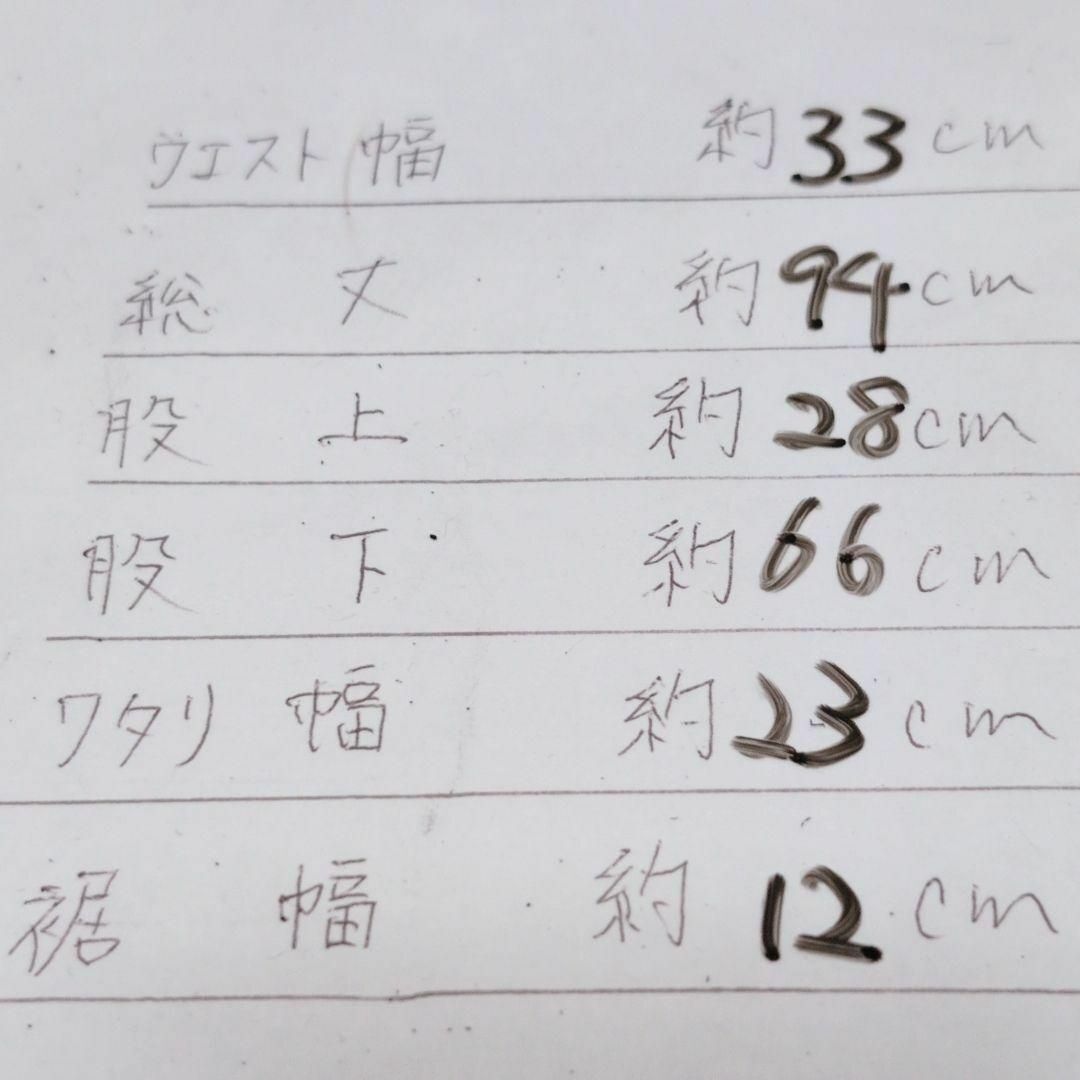 ウエスト幅 約33cm
総丈 約94cm
股上 約28cm
股下 約66cm
ワタリ幅 約23cm
裾幅 約12cm